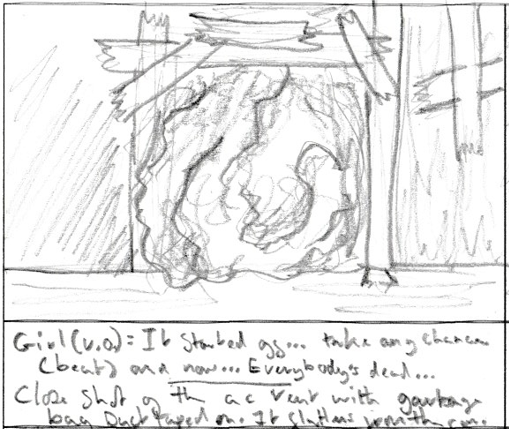 Girl (v.o.): It started as... take any chances
(beat) and now... Everybody's dead...
Close Shot of th ac vent with garbage
bag Duct taped on. It flutters